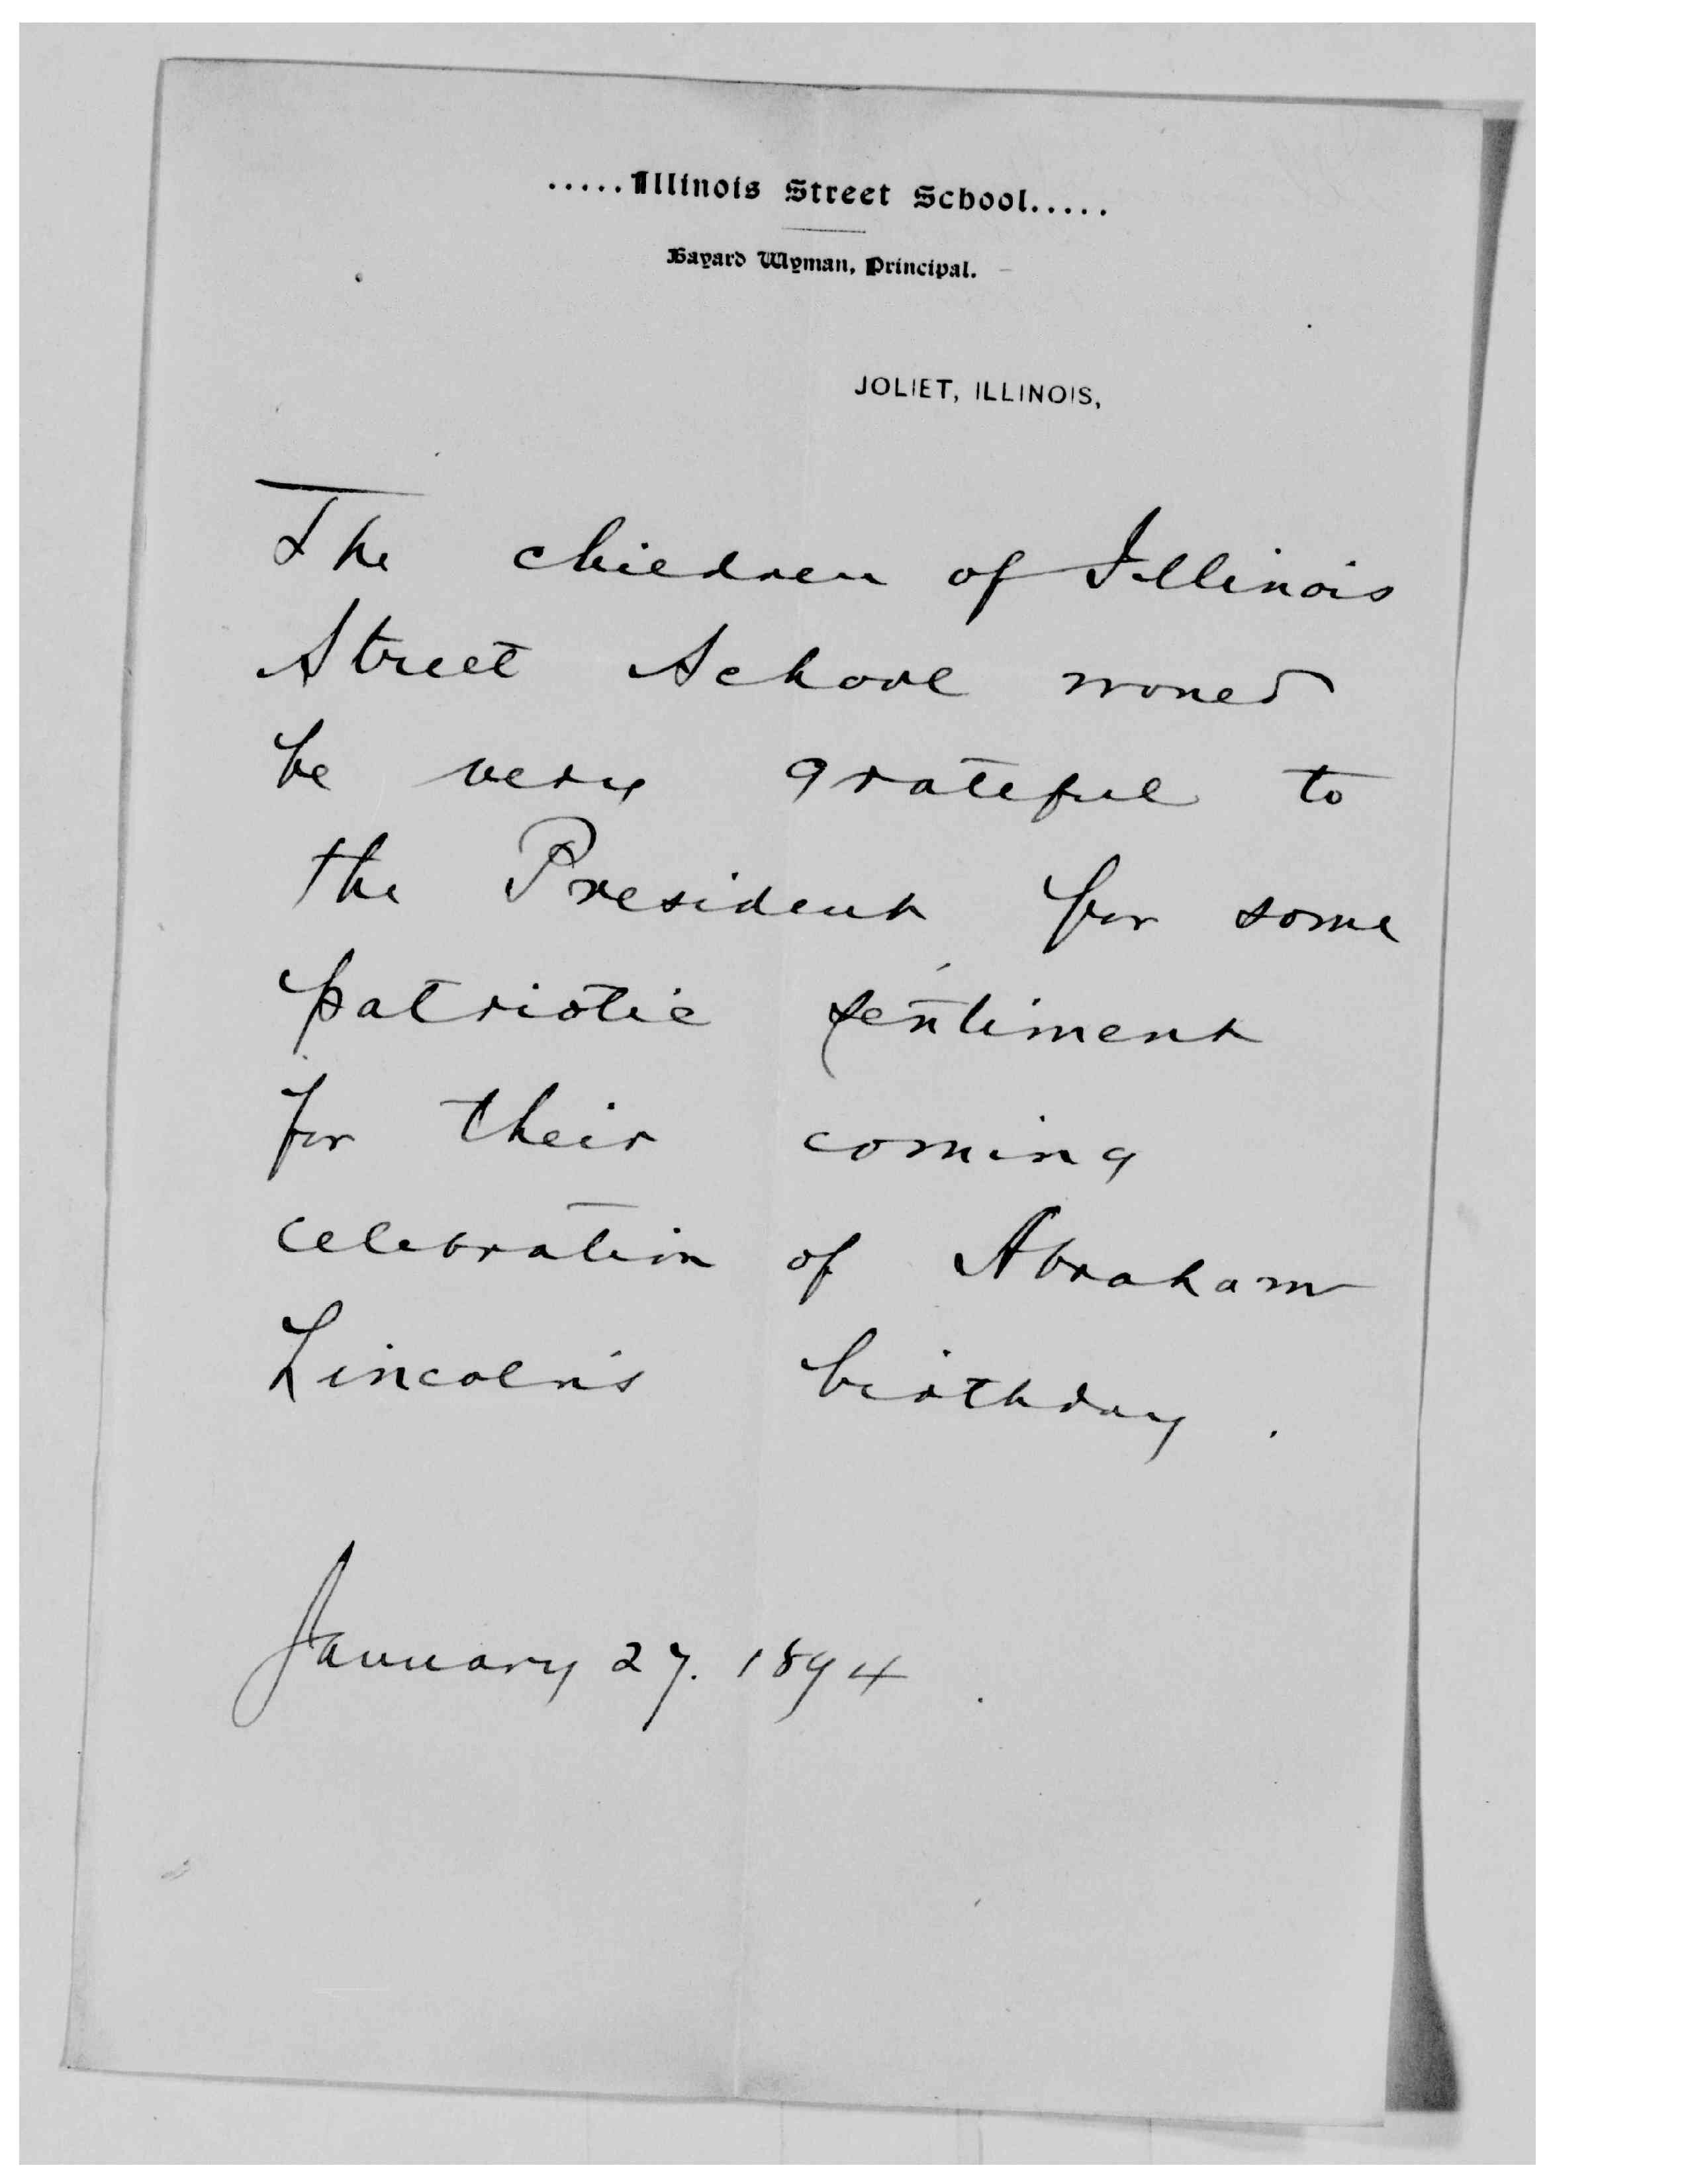 .....Illinois Street School.....
Bayard Wyman, Principal.
JOLIET, ILLINOIS,
The children of Illinois
Street School would
be very grateful to
the President for some
patriotic sentiment
for their coming
celebration of Abraham
Lincoln's birthday.
January 27. 1894.